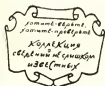 хотите - верьте,
хотите - проверьте
КОЛЛЕКЦИЯ
СВЕДЕНИЙ НЕ СЛИШКОМ
ИЗВЕСТНЫХ